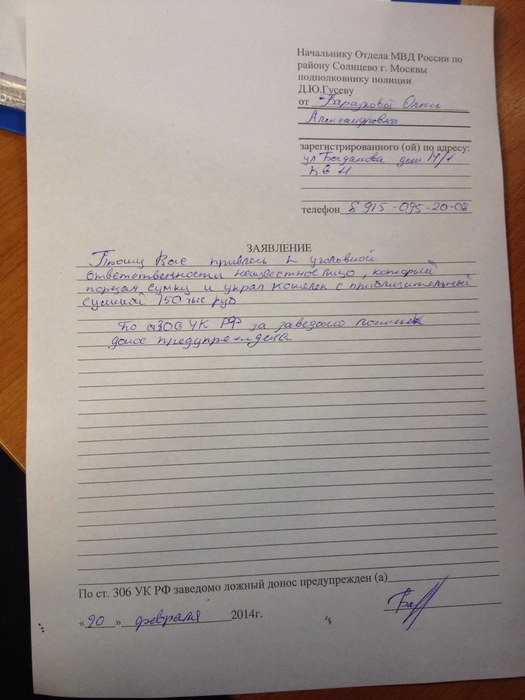 Начальнику Отдела МВД России по
району Солнцево г. Москвы
подполковнику полиции
Д.Ю.Гусеву
от Бараровой Ольги
Александровна
зарегистрированного (ой) по адресу:
ул Богданова дом 14/1
кв 4
телефон 8 915-095-20-08
ЗАЯВЛЕНИЕ
Прошу Вас привлечь к уголовной
ответственности неизвестное лицо, который
порезал сумку и украл кошелек с приблизительный
суммой 150 тыс руб
По ст306 УК РФ за заведомо
донос предупреждена
По ст. 306 УК РФ заведомо ложный донос предупрежден (а)
« 20 » февраля 2014г.